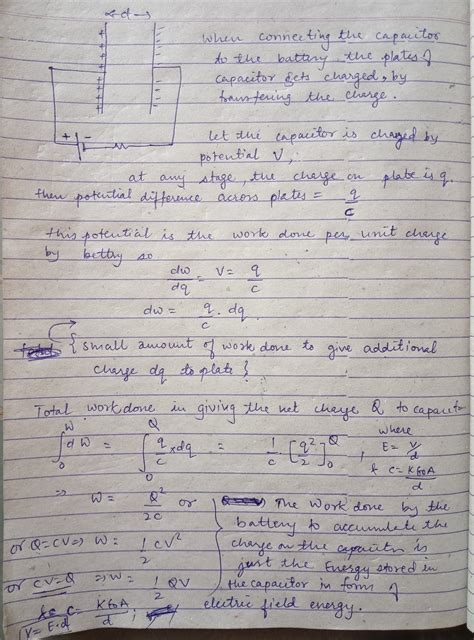 ← d →
When connecting the capacitor
to the battery the plates of
capacitor gets charged, by
transfering the charge.
Let the capacitor is charged by
potential V,
at any stage, the charge on plate is q.
then potential difference across plates = q/c
this potential is the work done per unit charge
by bettry so
dw/dq = V = q/c
dw = q/c . dq
{ small amount of work done to give additional
charge dq to plate }
Total work done in giving the net charge Q to capacit
∫₀ᵂ dW = ∫₀^Q q/c × dq = 1/c [q²/2]₀^Q , where
E = V/d
& C = Kε₀A/d
⇒ W = Q²/2C or
or Q = CV ⇒ W = 1/2 CV²
or CV = Q ⇒ W = 1/2 QV
C = Kε₀A/d ;
V = E·d
The work done by the
battery to accumulate the
charge on the capacitor is
just the Energy stored in
the capacitor in form of
electric field energy.